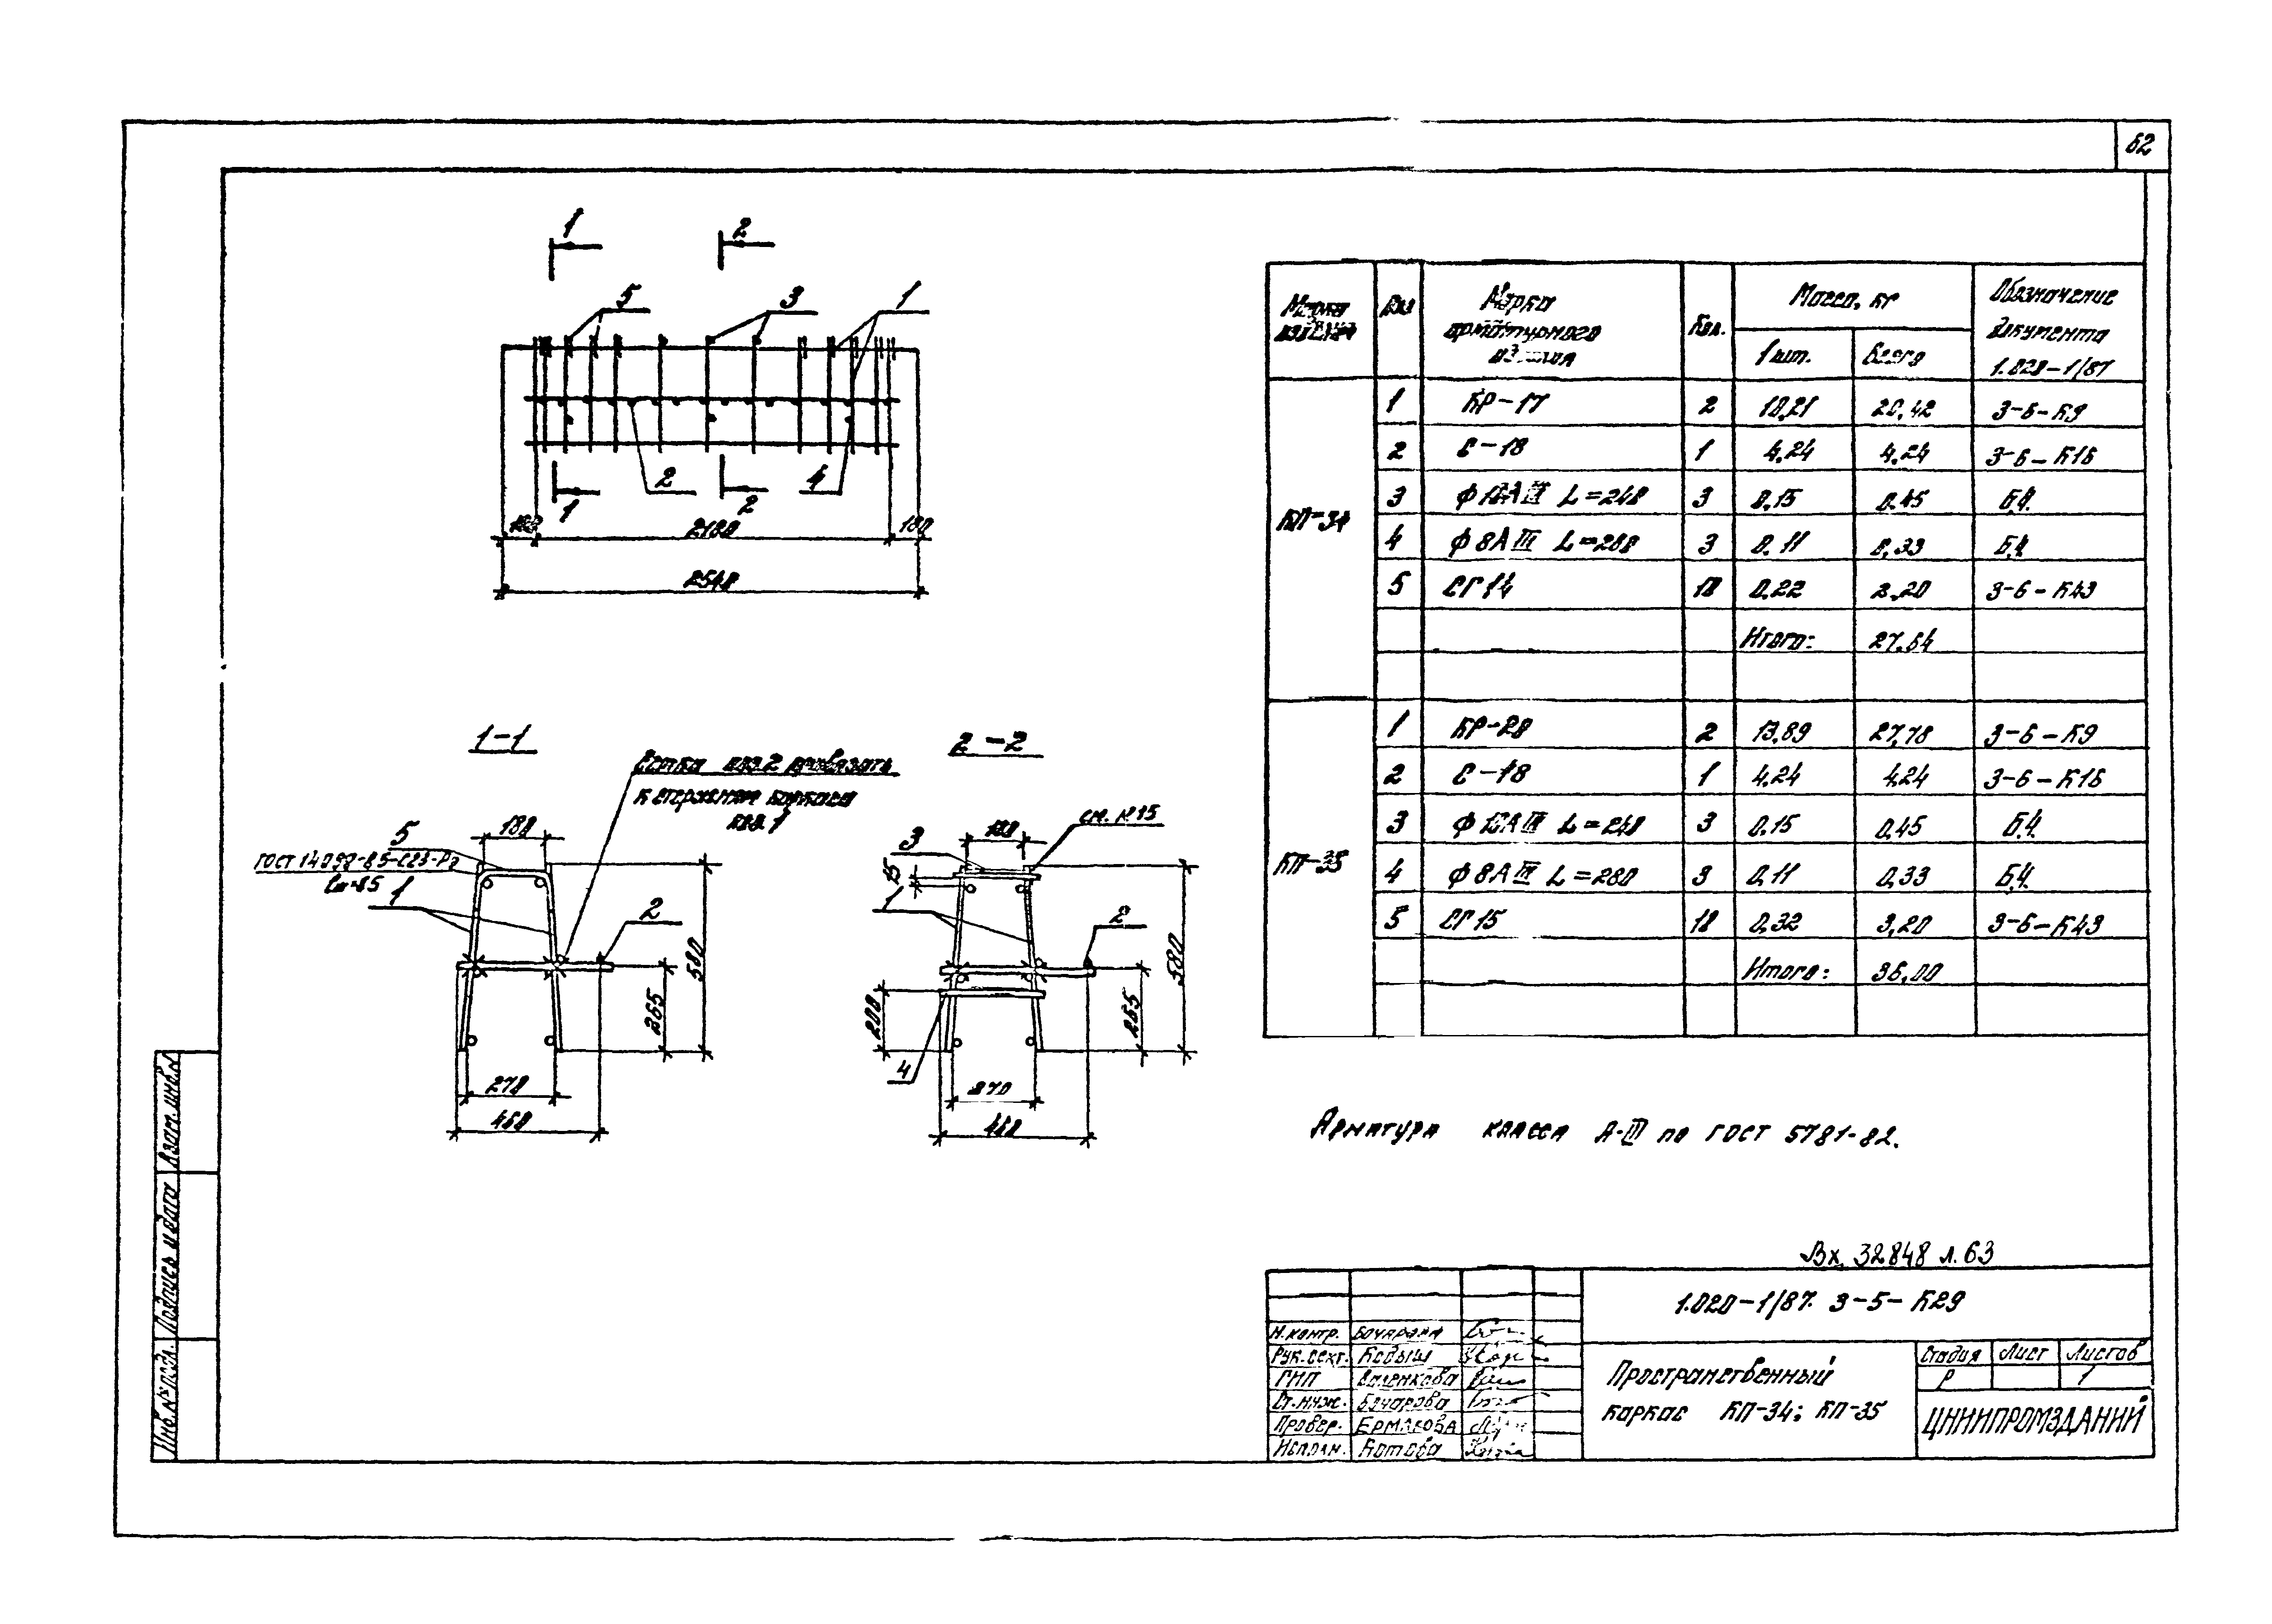 62
1 2
5 3 1
2 4
1 2
180 2180 180
2540
1-1
Сетка поз.2 привязать
к стержням каркаса
поз.1
5 180
ГОСТ 14098-85-С23-Рэ
1
2
265 580
270
460
2-2
см. К15
3 180
15
1 2
200 265 580
4
270
460
Марка изделия Поз Марка арматурного изделия Кол. Масса, кг 1 шт. Всего Обозначение документа 1.020-1/87
КП-34
1 КР-17 2 10,21 20,42 3-6-К9
2 С-18 1 4,24 4,24 3-6-К16
3 L=240 3 0,15 0,45 Б.Ч.
4 Ф8АIII L=280 3 0,11 0,33 Б.Ч.
5 СГ14 10 0,22 2,20 3-6-К43
Итого: 27,64
КП-35
1 КР-20 2 13,89 27,78 3-6-К9
2 С-18 1 4,24 4,24 3-6-К16
3 L=240 3 0,15 0,45 Б.Ч.
4 Ф8АIII L=280 3 0,11 0,33 Б.Ч.
5 СГ15 10 0,32 3,20 3-6-К43
Итого: 36,00
Арматура класса А-III по ГОСТ 5781-82.
Вх. 32848 л.63
1.020-1/87. 3-5-К29
Н.контр. Бочарова
Рук.сект. Кодыш
ГИП Виленкова
Ст.инж. Бочарова
Провер. Ермакова
Исполн. Котова
Пространственный
каркас КП-34; КП-35
Стадия Лист Листов
Р 1
ЦНИИПРОМЗДАНИЙ
Взам.инв.№
Подпись и дата
Инв.№ подл.